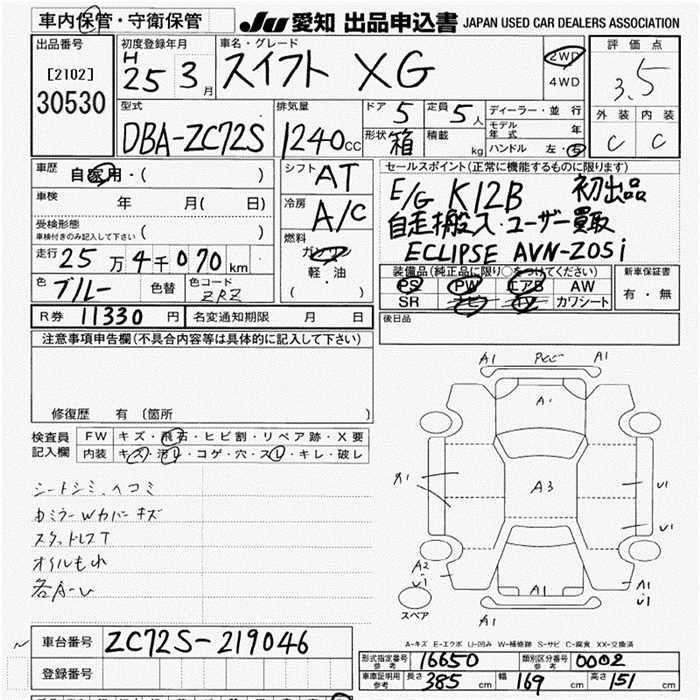 車内保管・守衛保管 JU 愛知 出品申込書 JAPAN USED CAR DEALERS ASSOCIATION
出品番号 初度登録年月 車名・グレード 評価点
[2102] H 25 3月 スイフト XG 2WD 4WD 3.5
30530
型式 排気量 ドア 5 定員 5人 ディーラー・並行 外装 内装
DBA-ZC72S 1240cc 形状 箱 積載 kg モデル年式 年 C C
ハンドル 左・右
車歴 自家用・( ) シフト AT セールスポイント(正常に機能するものに限ります)
車検 年 月( 日) 冷房 A/C E/G K12B 初出品
受検形態 車検付きのみ記入して下さい ( ) 自走搬入・ユーザー買取
走行 25万4千070km 燃料 ガソリン 軽・油 ( ) ECLIPSE AVN-Z05i
色 ブルー 色替 色コード ZRZ 装備品(純正品に限り○をつけてください) 新車保証書
PS PW エアB AW 有・無
SR ナビ TV カワシート
R券 11330円 名変通知期限 月 日 後日品
注意事項申告欄(不具合内容等は具体的に記入して下さい)
修復歴 有 〔箇所 〕
検査員記入欄 FW キズ・飛石・ヒビ割・リペア跡・X要
内装 キズ・汚レ・コゲ・穴・スレ・キレ・破レ
シートシミ、ヘコミ
カミラーWカバーキズ
スタッドレスT
オイルもれ
A1 A1
A1
A1 A3 U1
U1
A2 U1 A1 A1 U1
スペア A1
A-キズ E-エクボ U-凹み W-補修跡 S-サビ C-腐食 XX-交換済
車台番号 ZC72S-219046
登録番号
形式指定番号 参考 16650 類別区分番号 参考 0002
車庫証明用 参考 長さ 385cm 幅 169cm 高さ 151cm